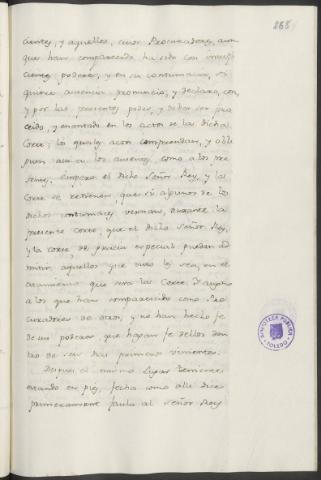 268
cientes, y aquellos, cuios Procuradores, aun
que han comparecido ha sido con insufi
cientes poderes, y en su contumacia, si
quiere ausencia pronuncio, y declaro, con,
y por las presentes poder, y deber ser pro
ceido, y enantado en los actos de la dicha
Corte; los quales actos comprendan, y obli
guen assi a los ausentes, como a los pre
sentes, empero el dicho Señor Rey, y la
Corte se retienen, que si algunos de los
dichos contumaces vernan, durante la
presente Corte, que el dicho Señor Rey,
y la Corte, de gracia especial puedan ad
mitir, aquellos que
a los que han comparecido como Pro
curadores de otros, y no han hecho fe
de sus poderes que hagan fe dellos den
tro de seis dias primeros vinientes.
Despues el mismo Lugar Teniente
estando en pie, fecha como alli dice
primeramente faula al Señor Rey
BIBLIOTECA PUBLICA
TOLEDO